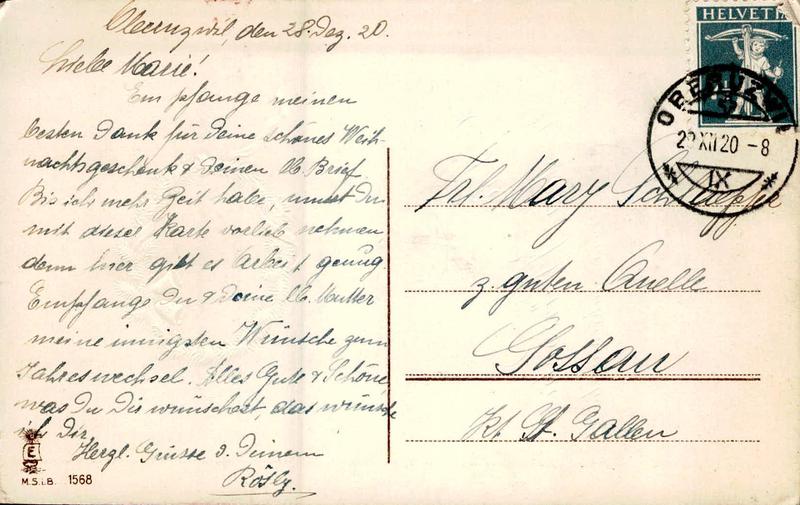 Oberuzwil, den 28. Dez. 20.
Liebe Marie!
Empfange meinen
besten Dank für Deine schönes Weih-
nachtsgeschenk & Deinen lb. Brief.
Bis ich mehr Zeit habe, musst Du
mit dieser Karte vorlieb nehmen,
denn hier gibt es Arbeit genug.
Empfange Du & Deine lb. Mutter
meine innigsten Wünsche zum
Jahreswechsel. Alles Gute & Schöne,
was Du Dir wünschest, das wünsche
ich Dir.
Herzl. Grüsse v. Deinem
Rösly.
M.S.i.B. 1568
HELVETIA
OBERUZWIL
XII 20 -8
IX
Frl. Mary
z. guten Quelle
Gossau
Kt. St. Gallen